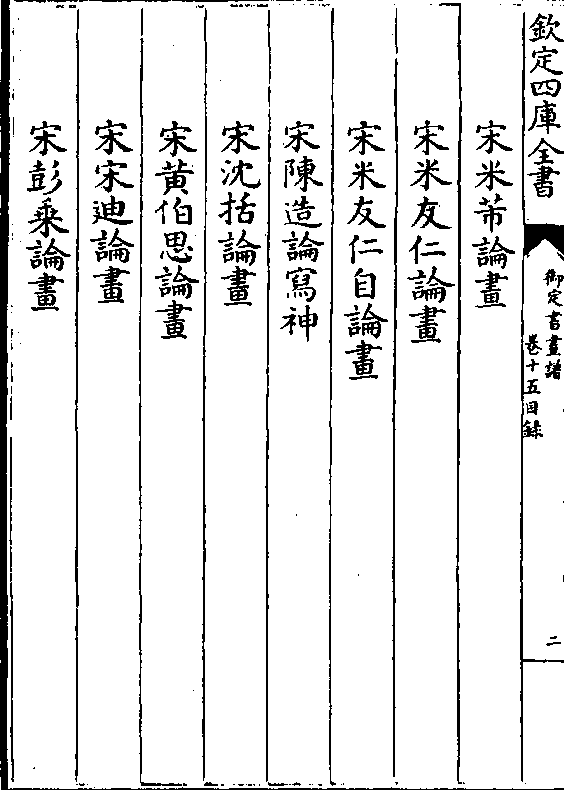 欽定四庫全書
御定書畫譜
卷十五目錄
二
宋米芾論畫
宋米友仁論畫
宋米友仁自論畫
宋陳造論寫神
宋沈括論畫
宋黄伯思論畫
宋宋迪論畫
宋彭乗論畫